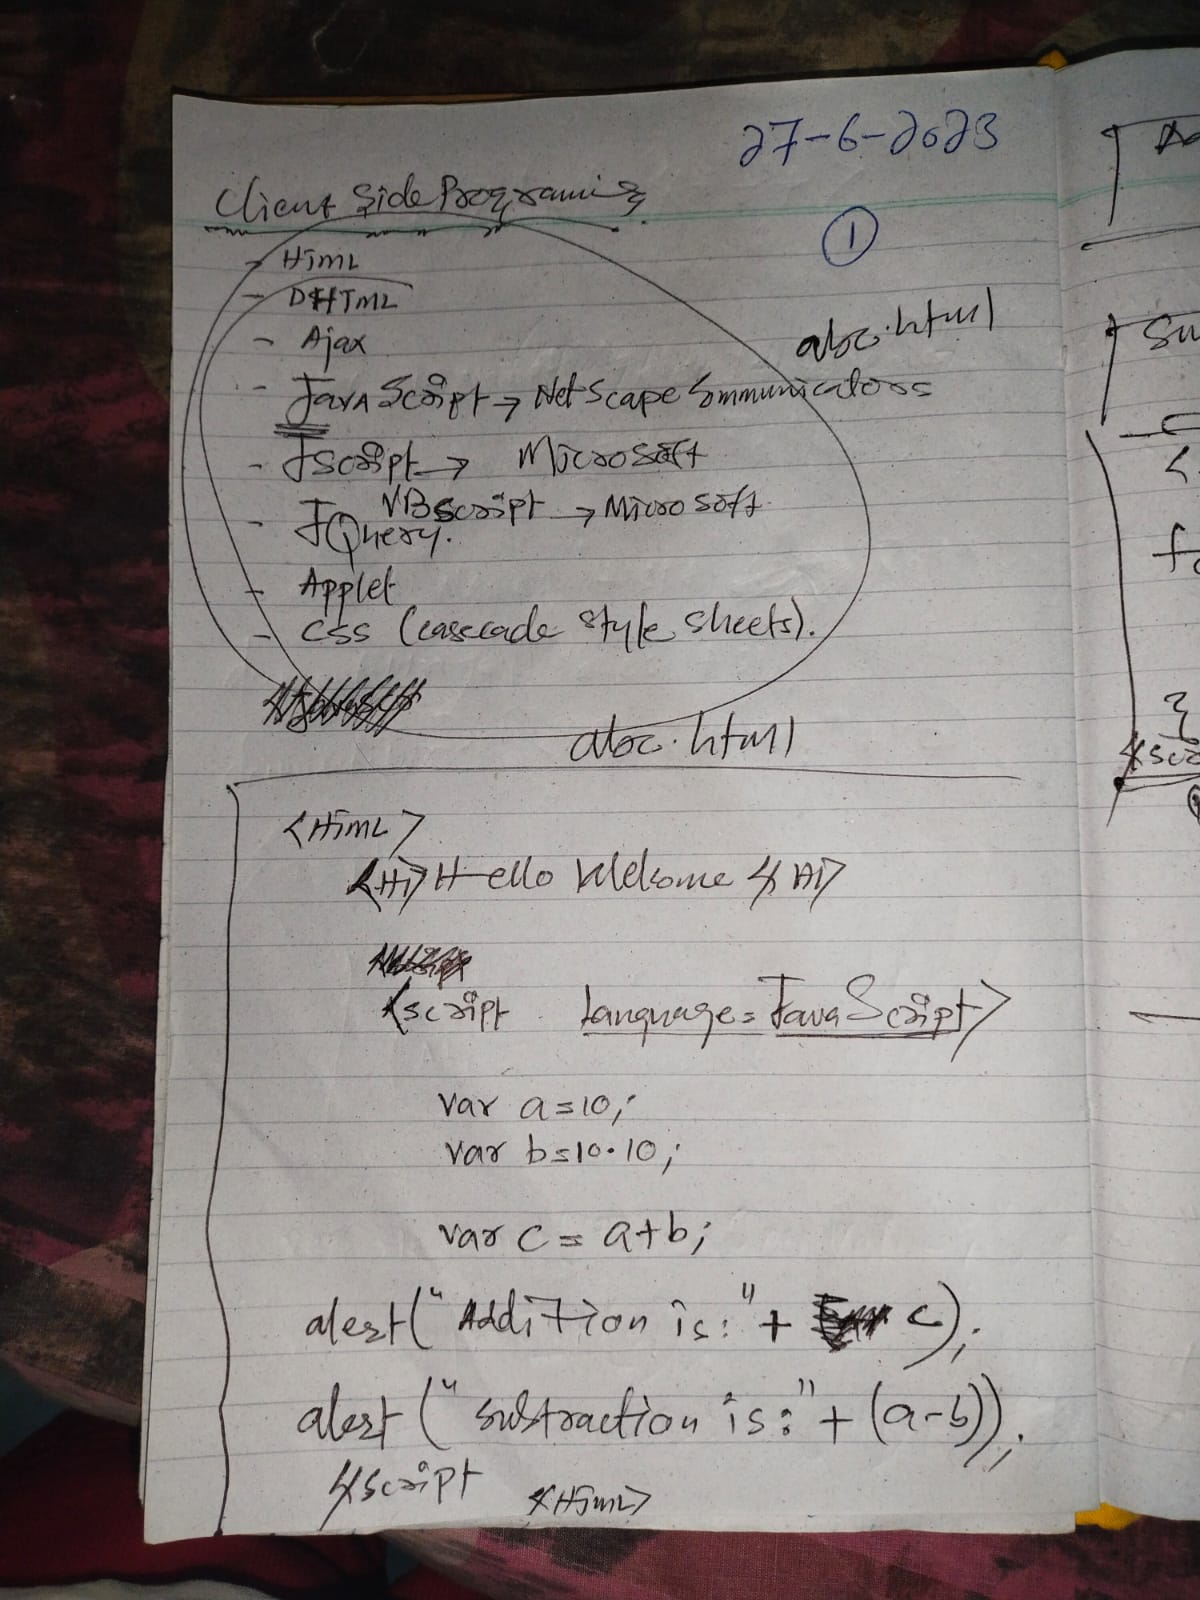 27-6-2023
Client Side Programing
1
- HTML
- DHTML
abc.html
- Ajax
- JavaScript → Netscape Communicators
- JScript → Microsoft
VBScript → Microsoft
- JQuery.
- Applet
- CSS (cascade style sheets).
abc.html
<HTML>
<H1> Hello Welcome </H1>
<script Language=JavaScript>
var a=10;
var b=10.10;
var c = a+b;
alert("Addition is:" + c);
alert("subtraction is:" + (a-b));
</script
</HTML>